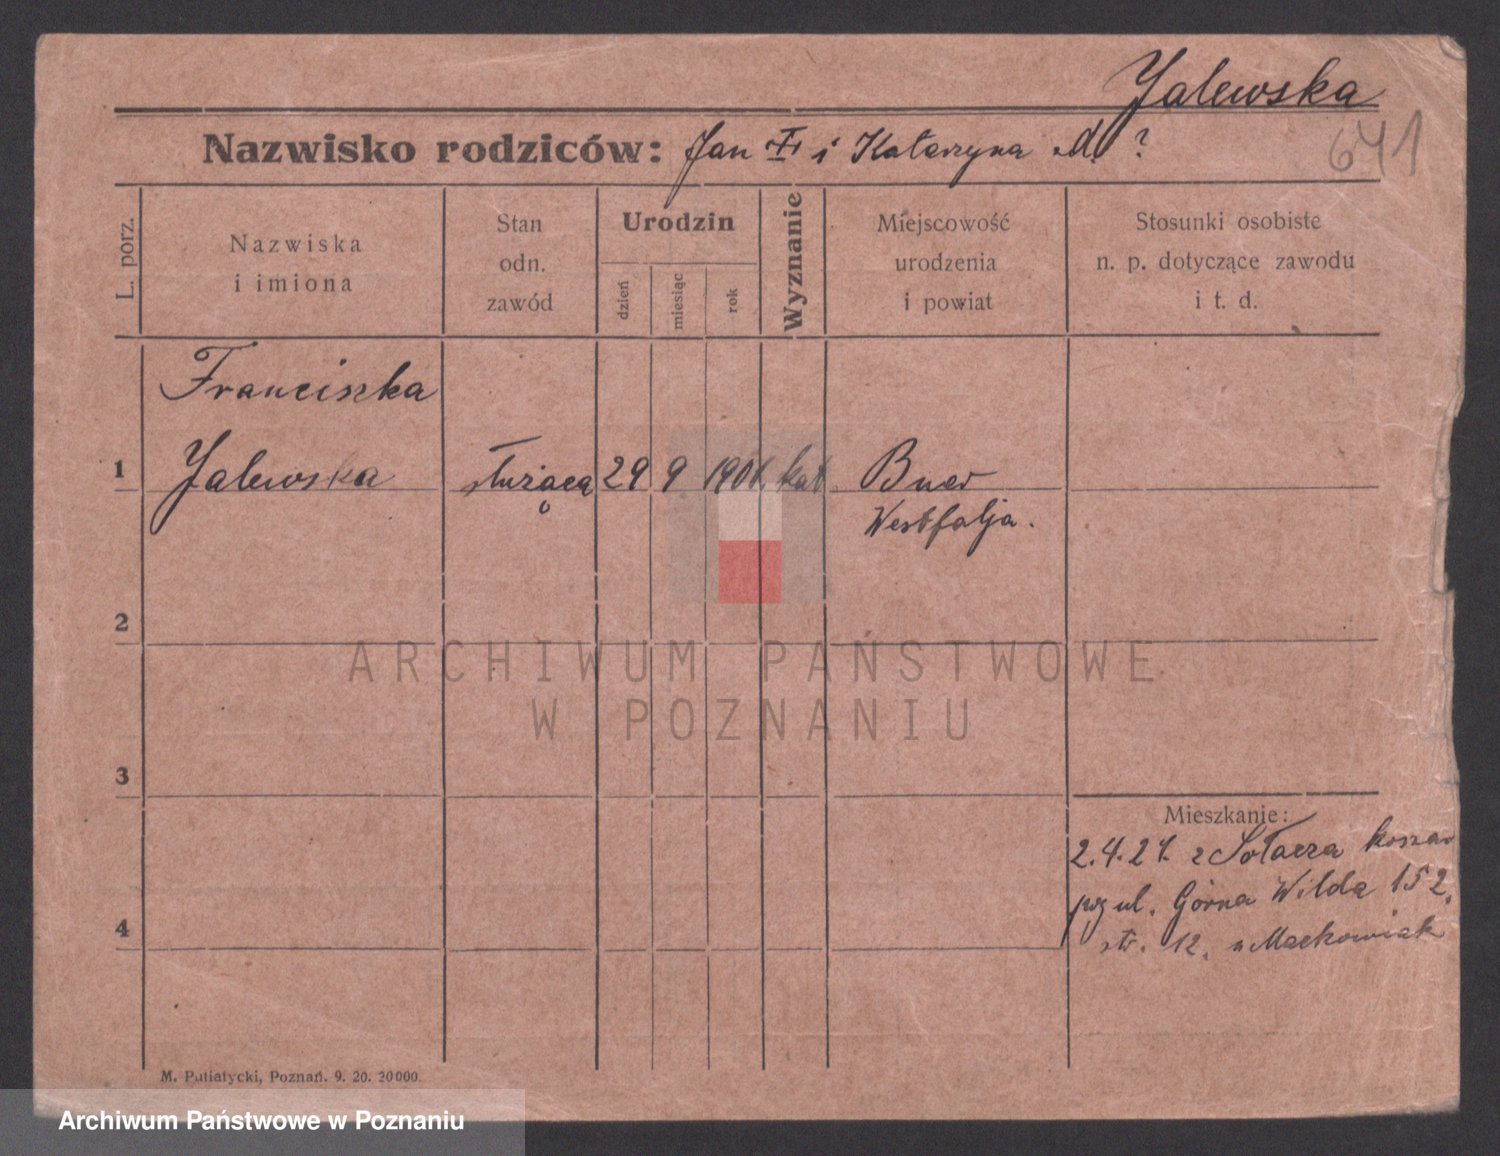 Jalewska
Nazwisko rodziców: Jan i Katarzyna d. ?
641
L. porz.
Nazwiska
i imiona
Stan
odn.
zawód
Urodzin
dzień
miesiąc
rok
Wyznanie
Miejscowość
urodzenia
i powiat
Stosunki osobiste
n. p. dotyczące zawodu
i t. d.
Franciszka
1 Jalewska służąca 29 9 1901 kat Buer
Westfalja.
2
ARCHIWUM PAŃSTWOWE
W POZNANIU
3
Mieszkanie:
2.4.21. z Sołacza koszar
ul. Górna Wilda 152.
4
str. 12. u Maćkowiak
M. Putiatycki, Poznań. 9. 20. 20000.
Archiwum Państwowe w Poznaniu